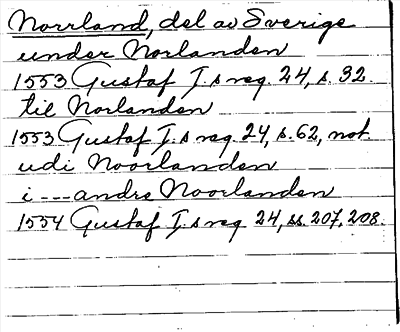 Norrland, del av Sverige
under Norlanden
1553 Gustaf I.s reg. 24, s. 32.
til Norlanden
1553 Gustaf I.s reg. 24, s. 62, not.
udi Noorlanden
i --- andre Noorlanden
1554 Gustaf I.s reg. 24, ss. 207, 208.